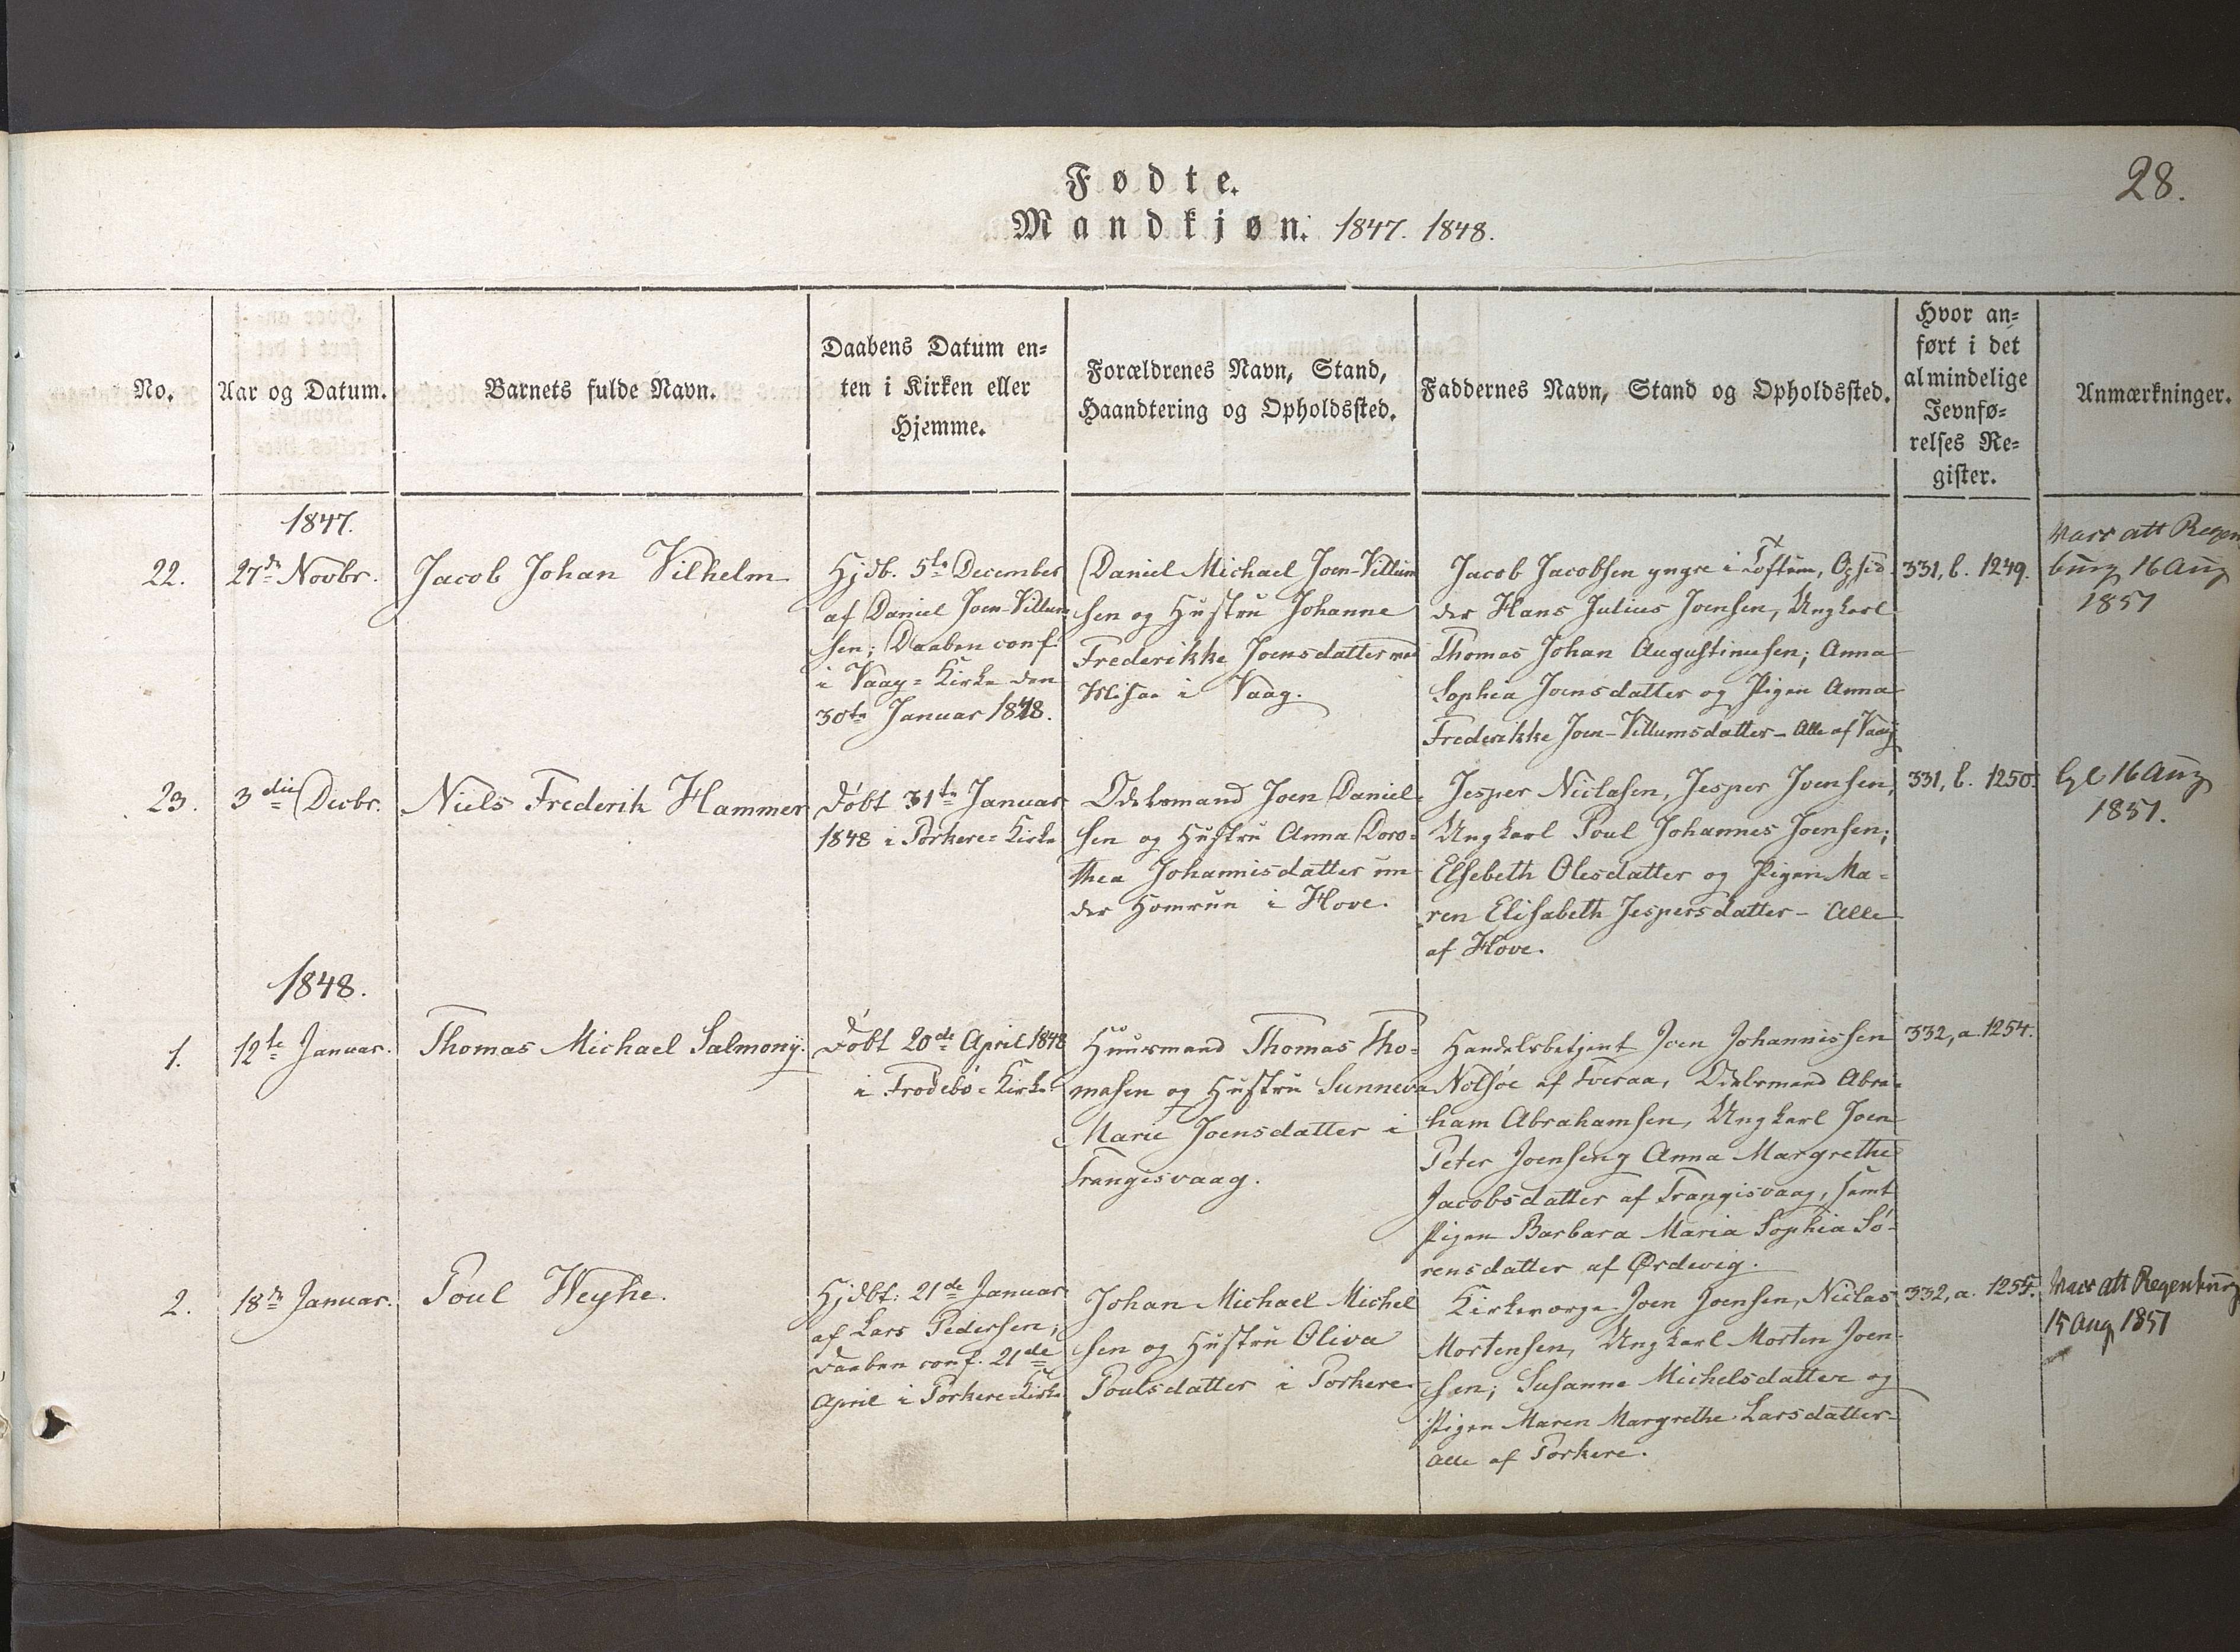 28.
Fødte.
Mandkjøn. 1847. 1848.
No.
Aar og Datum.
Barnets fulde Navn.
Daabens Datum en=
ten i Kirken eller
Hjemme.
Forældrenes Navn, Stand,
Haandtering og Opholdssted.
Faddernes Navn, Stand og Opholdssted.
Hvor an=
ført i det
almindelige
Jevnfø=
relses Re=
gister.
Anmærkninger.
1847.
22.
27de Novbr.
Jacob Johan Vilhelm
Hjdb. 5te December
af Daniel Joen-Villum
sen; Daaben conf.
i Vaag=Kirke den
30te Januar 1848.
Daniel Michael Joen-Villum
sen og Hustru Johanne
Frederikke Joensdatter
i Vaag.
Jacob Jacobsen yngre i Toftum, Opsid
der Hans Julius Joensen, Ungkarl
Thomas Johan Augustinusen; Anna
Sophia Joensdatter og Pigen Anna
Frederikke Joen-Villumsdatter - Alle af Vaag
331, b. 1249.
Vacc att Regen
burg 16 Aug
1851
23.
3die Decbr.
Niels Frederik Hammer
Døbt 31te Januar
1848 i Porkere=Kirke
Odelsmand Joen Daniel=
sen og Hustru Anna Doro=
thea Johannisdatter un
der Homrun i Hove.
Jesper Niclasen, Jesper Joensen,
Ungkarl Poul Johannes Joensen;
Elsebeth Olesdatter og Pigen Ma=
ren Elisabeth Jespersdatter - Alle
af Hove.
331, b. 1250.
16 Aug
1851.
1848.
1.
12te Januar.
Thomas Michael Salmony.
Døbt 20de April 1848
i Frodebø=Kirke
Huusmand Thomas Tho=
masen og Hustru Sunneva
Marie Joensdatter i
Trangisvaag.
Handelsbetjent Joen Johannissen
Nolsöe af Tveraa, Odelsmand Abra=
ham Abrahamsen, Ungkarl Joen
Peter Joensen; Anna Margrethe
Jacobsdatter af Trangisvaag, samt
Pigen Barbara Maria Sophia Sö=
rensdatter af Ørdevig.
332, a. 1254.
2.
18de Januar.
Poul Weyhe.
Hjdbt: 21de Januar
af Lars Pedersen;
Daaben conf. 21de
April i Porkere=Kirke
Johan Michael Michel
sen og Hustru Oliva
Poulsdatter i Porkere.
Kirkeværge Joen Joensen, Niclas
Mortensen, Ungkarl Morten Joen=
sen; Susanne Michelsdatter og
Pigen Maren Margrethe Larsdatter-
Alle af Porkere.
332, a. 1255.
Vacc att Regenburg
15 Aug 1851